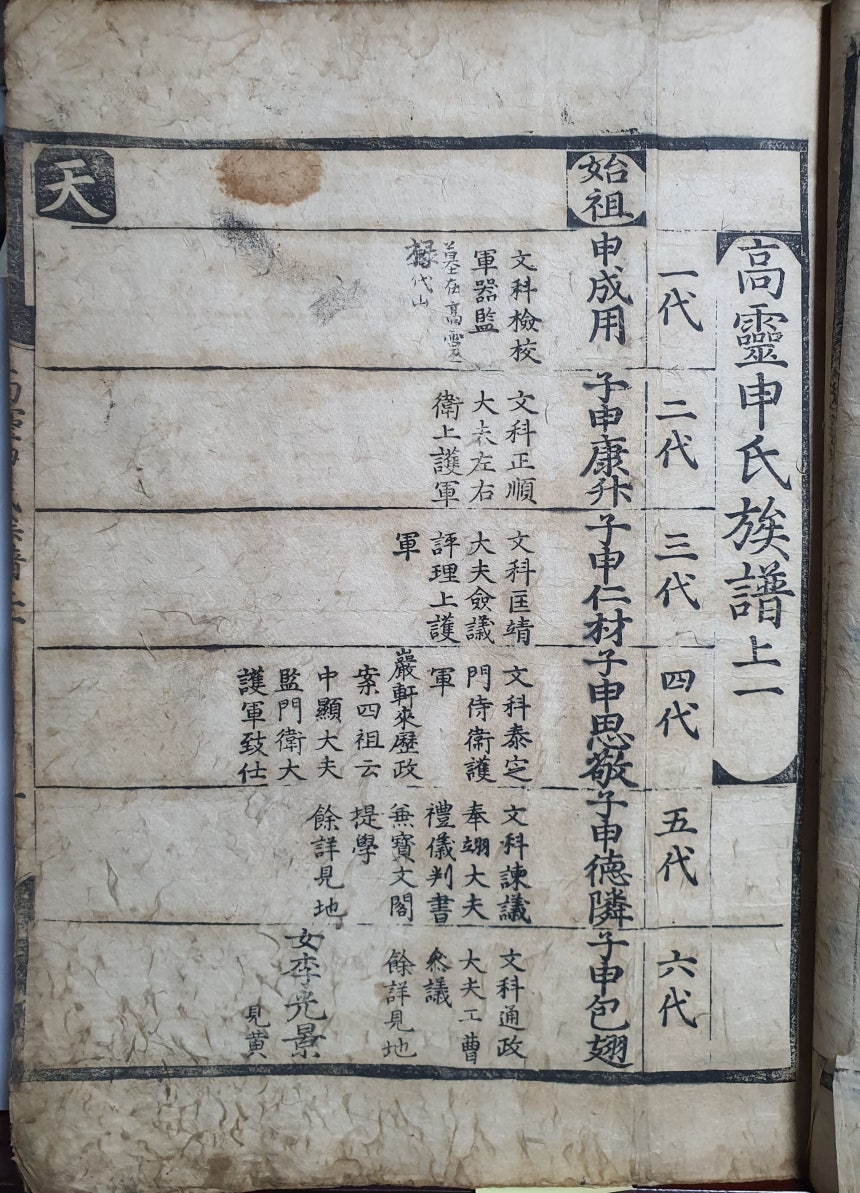 高靈申氏族譜上一
一代
二代
三代
四代
五代
六代
始祖
申成用
文科檢校
軍器監
墓在高靈
椂代山
子申康升
文科正順
大夫左右
衛上護軍
子申仁材
文科匡靖
大夫僉議
評理上護
軍
子申思敬
文科泰定
門侍衛護
軍
巖軒來歷政
案四祖云
中顯大夫
監門衛大
護軍致仕
子申德隣
文科諫議
奉翊大夫
禮儀判書
兼寶文閣
提學
餘詳見地
子申包翅
文科通政
大夫工曹
叅議
餘詳見地
女李光景
見黃
天